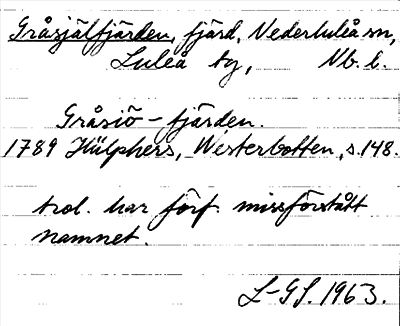 Gråsjälfjärden, fjärd, Nederluleå sn,
Luleå by, Nb. l.
Gråsiö - fjärden.
1789 Hülphers, Westerbotten, s. 148.
trol. har förf. missförstått
namnet.
L-GS. 1963.